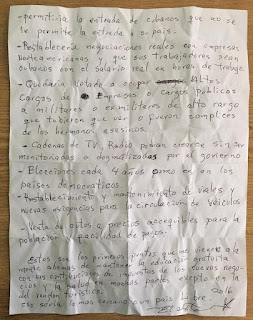 - permitiria la entrada de cubanos que no se
le permite la entrada a su pais.
- Restableceria negociaciones reales con empresas
Norteamericanas y que sus trabajadores sean
cubanos con el salario real en horas de trabajo.
- Quedaria Vetado a ocupar Altos
Cargos de Empresas o cargos publicos
a militares o exmilitares de alto rango
que tubieron que ver o fueron complices
de los hermanos asesinos.
- Cadenas de TV, Radio podran crearse sin ser
monitoriadas o dogmatizadas por el govierno
- Elecciones cada 4 años como es en los
paises democraticos.
- Restablecimiento y mantenimiento de viales y
nuevas exigencias para la circulacion de vehiculos
- Venta de autos a precios accequibles para la
poblacion y facilidad de pagos.
Estos son los primeros puntos que me vienen a la
mente ademas de mantener la educacion gratuita
con las contribuciones de impuestos de los nuevos nego-
cios y la salud en muchas partes exepto en
del renden turistico.
2016
Eso seria lo mas cercano a un pais Libre